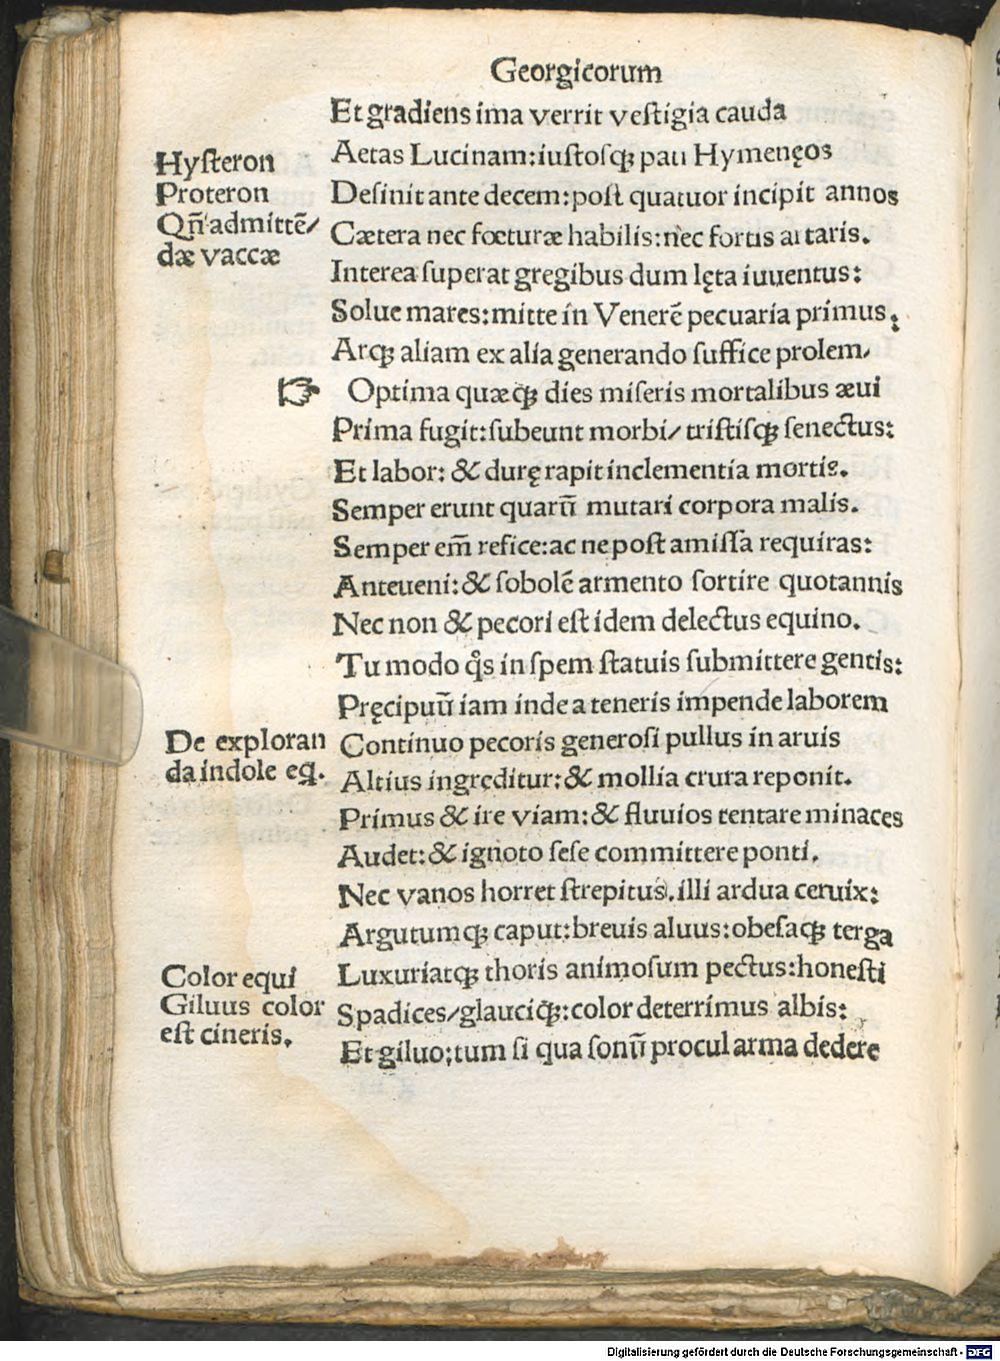 Georgicorum
Et gradiens ima verrit veſtigia cauda
Hyſteron
Proteron
Qn̄ admittē/
dæ vaccæ
Aetas Lucinam: iuſtoſqꝫ pati Hymenęos
Deſinit ante decem: poſt quatuor incipit annos
Cætera nec fœturæ habilis: nec fortis aratris.
Interea ſuperat gregibus dum lęta iuuentus:
Solue mares: mitte in Venerē pecuaria primus.
Atqꝫ aliam ex alia generando ſuffice prolem/
☞ Optima quæqꝫ dies miſeris mortalibus æui
Prima fugit: ſubeunt morbi/ triſtiſqꝫ ſenectus:
Et labor: & durę rapit inclementia mortis.
Semper erunt quarū mutari corpora malis.
Semper em̄ refice: ac ne poſt amiſſa requiras:
Anteueni: & ſobolē armento ſortire quotannis
Nec non & pecori eſt idem delectus equino.
Tu modo qͦs in ſpem ſtatuis ſubmittere gentis:
Pręcipuū iam inde a teneris impende laborem
De exploran
da indole eq.
Continuo pecoris generoſi pullus in aruis
Altius ingreditur: & mollia crura reponit.
Primus & ire viam: & fluuios tentare minaces
Audet: & ignoto ſeſe committere ponti.
Nec vanos horret ſtrepitus. illi ardua ceruix:
Argutumqꝫ caput: breuis aluus: obeſaqꝫ terga
Color equi
Giluus color
eſt cineris.
Luxuriatqꝫ thoris animoſum pectus: honeſti
Spadices/ glauciqꝫ: color deterrimus albis:
Et giluo; tum ſi qua ſonū procul arma dedere
Digitalisierung gefördert durch die Deutsche Forschungsgemeinschaft - DFG